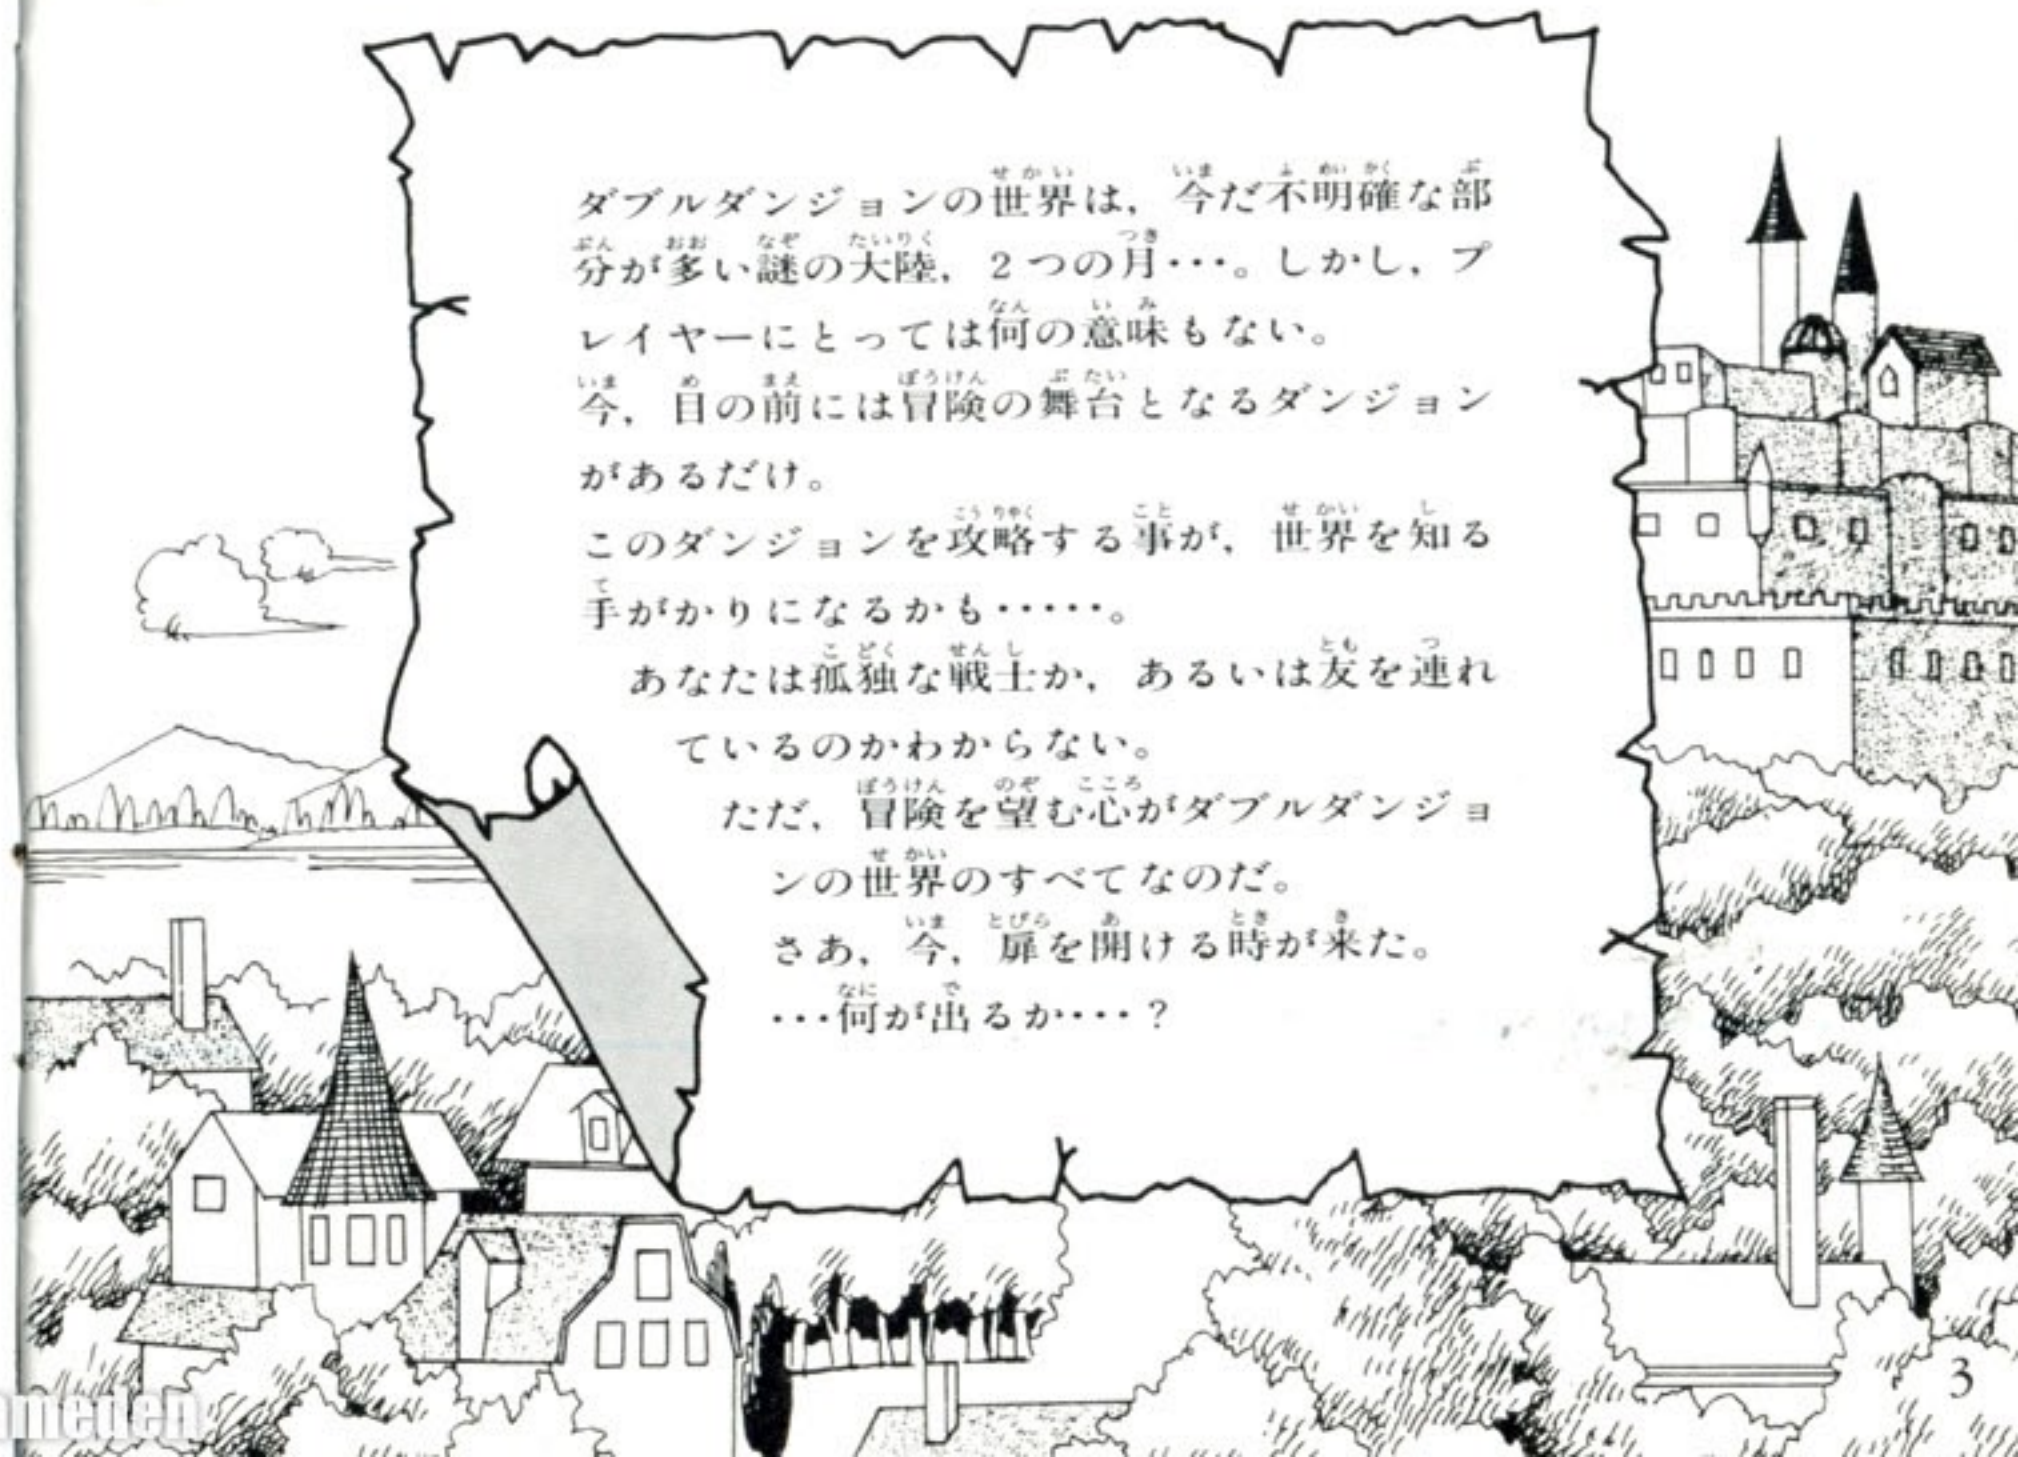 ダブルダンジョンの世界は，今だ不明確な部
分が多い謎の大陸，2つの月･･･。しかし，プ
レイヤーにとっては何の意味もない。
今，目の前には冒険の舞台となるダンジョン
があるだけ。
このダンジョンを攻略する事が，世界を知る
手がかりになるかも･････。
あなたは孤独な戦士か，あるいは友を連れ
ているのかわからない。
ただ，冒険を望む心がダブルダンジョ
ンの世界のすべてなのだ。
さあ，今，扉を開ける時が来た。
･･･何が出るか･･･？
3